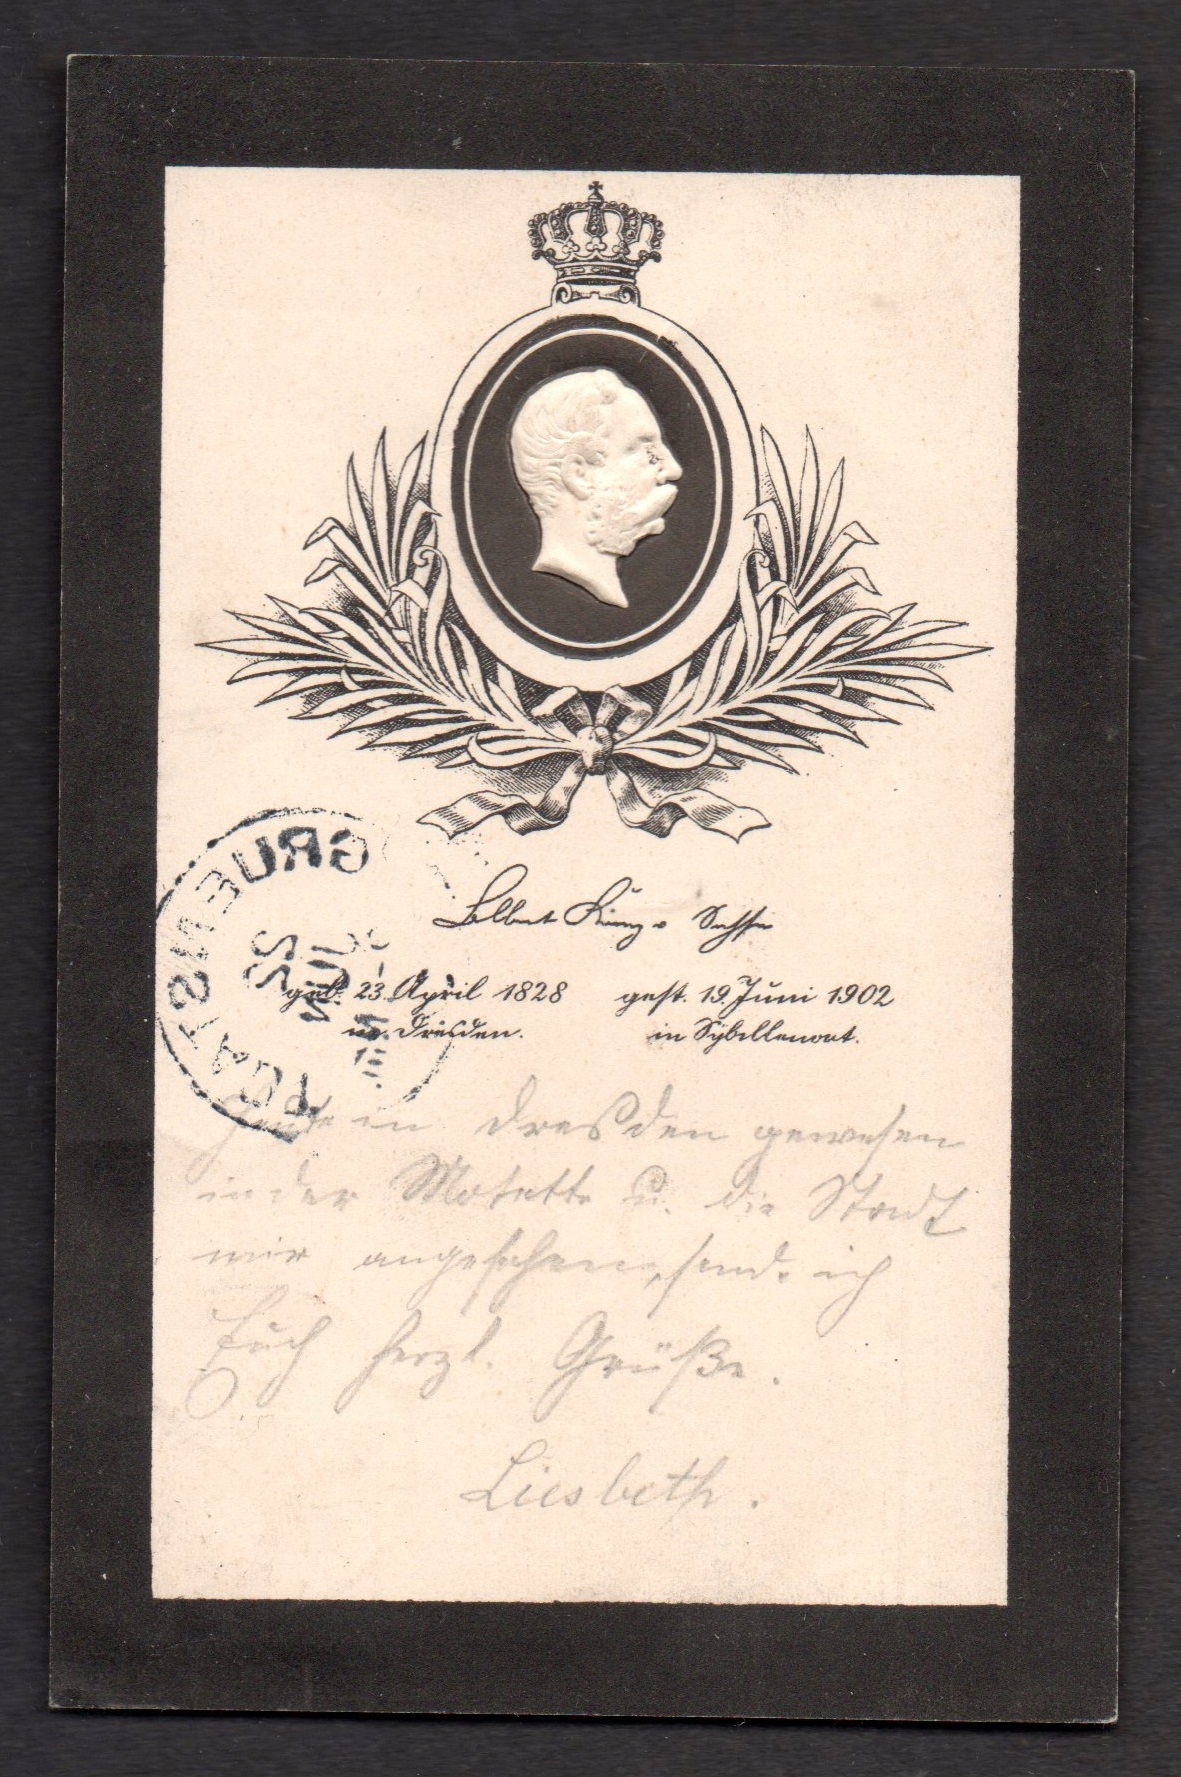 Albert König v. Sachsen
geb. 23. April 1828
in Dresden.
gest. 19. Juni 1902
in Sybillenort.
GRUENSTADT
22
JUN
Heute in Dresden gewesen
in der Motette u. die Stadt
mir angesehen, sende ich
Euch herzl. Grüße.
Liesbeth.